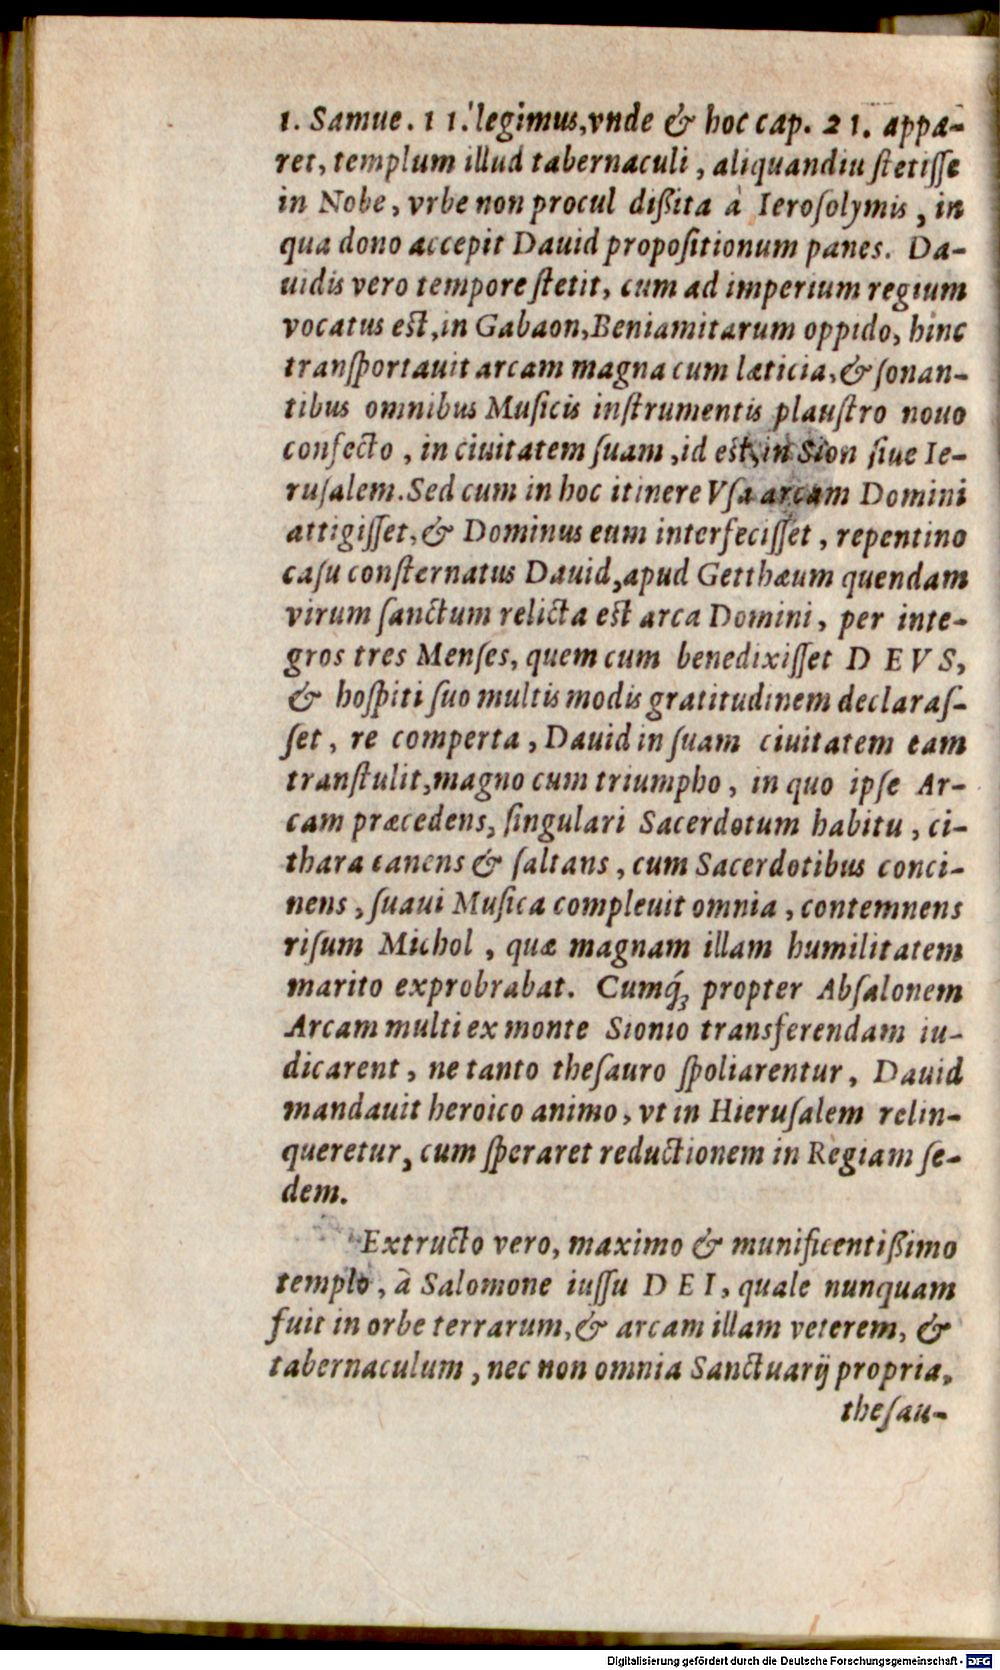 1. Samue. 11. legimus, vnde & hoc cap. 21. appa-
ret, templum illud tabernaculi, aliquandiu ſtetiſſe
in Nobe, vrbe non procul dißita à Ieroſolymis, in
qua dono accepit Dauid propoſitionum panes. Da-
uidis vero tempore ſtetit, cum ad imperium regium
vocatus est, in Gabaon, Beniamitarum oppido, hinc
tranſportauit arcam magna cum læticia, & ſonan-
tibus omnibus Muſicis inſtrumentis plauſtro nouo
confecto, in ciuitatem ſuam, id est, in Sion ſiue Ie-
ruſalem. Sed cum in hoc itinere Vſa arcam Domini
attigiſſet, & Dominus eum interfeciſſet, repentino
caſu conſternatus Dauid, apud Getthæum quendam
virum ſanctum relicta est arca Domini, per inte-
gros tres Menſes, quem cum benedixiſſet DEVS,
& hoſpiti ſuo multis modis gratitudinem declaraſ-
ſet, re comperta, Dauid in ſuam ciuitatem eam
tranſtulit, magno cum triumpho, in quo ipſe Ar-
cam præcedens, ſingulari Sacerdotum habitu, ci-
thara canens & ſaltans, cum Sacerdotibus conci-
nens, ſuaui Muſica compleuit omnia, contemnens
riſum Michol, quæ magnam illam humilitatem
marito exprobrabat. Cumq́ꝫ propter Abſalonem
Arcam multi ex monte Sionio transferendam iu-
dicarent, ne tanto theſauro ſpoliarentur, Dauid
mandauit heroico animo, vt in Hieruſalem relin-
queretur, cum ſperaret reductionem in Regiam ſe-
dem.
Extructo vero, maximo & munificentißimo
templo, à Salomone iuſſu DEI, quale nunquam
fuit in orbe terrarum, & arcam illam veterem, &
tabernaculum, nec non omnia Sanctuarij propria,
theſau-
Digitalisierung gefördert durch die Deutsche Forschungsgemeinschaft - DFG